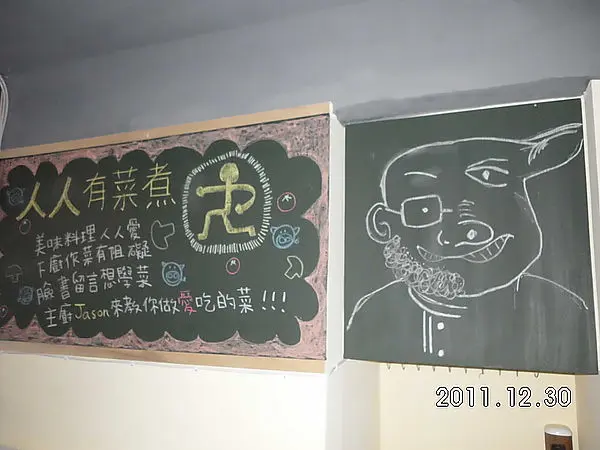 人人有菜煮
美味料理人人愛
下廚做菜有阻礙
臉書留言想學菜
主廚Jason來教你做愛吃的菜!!!
2011.12.30